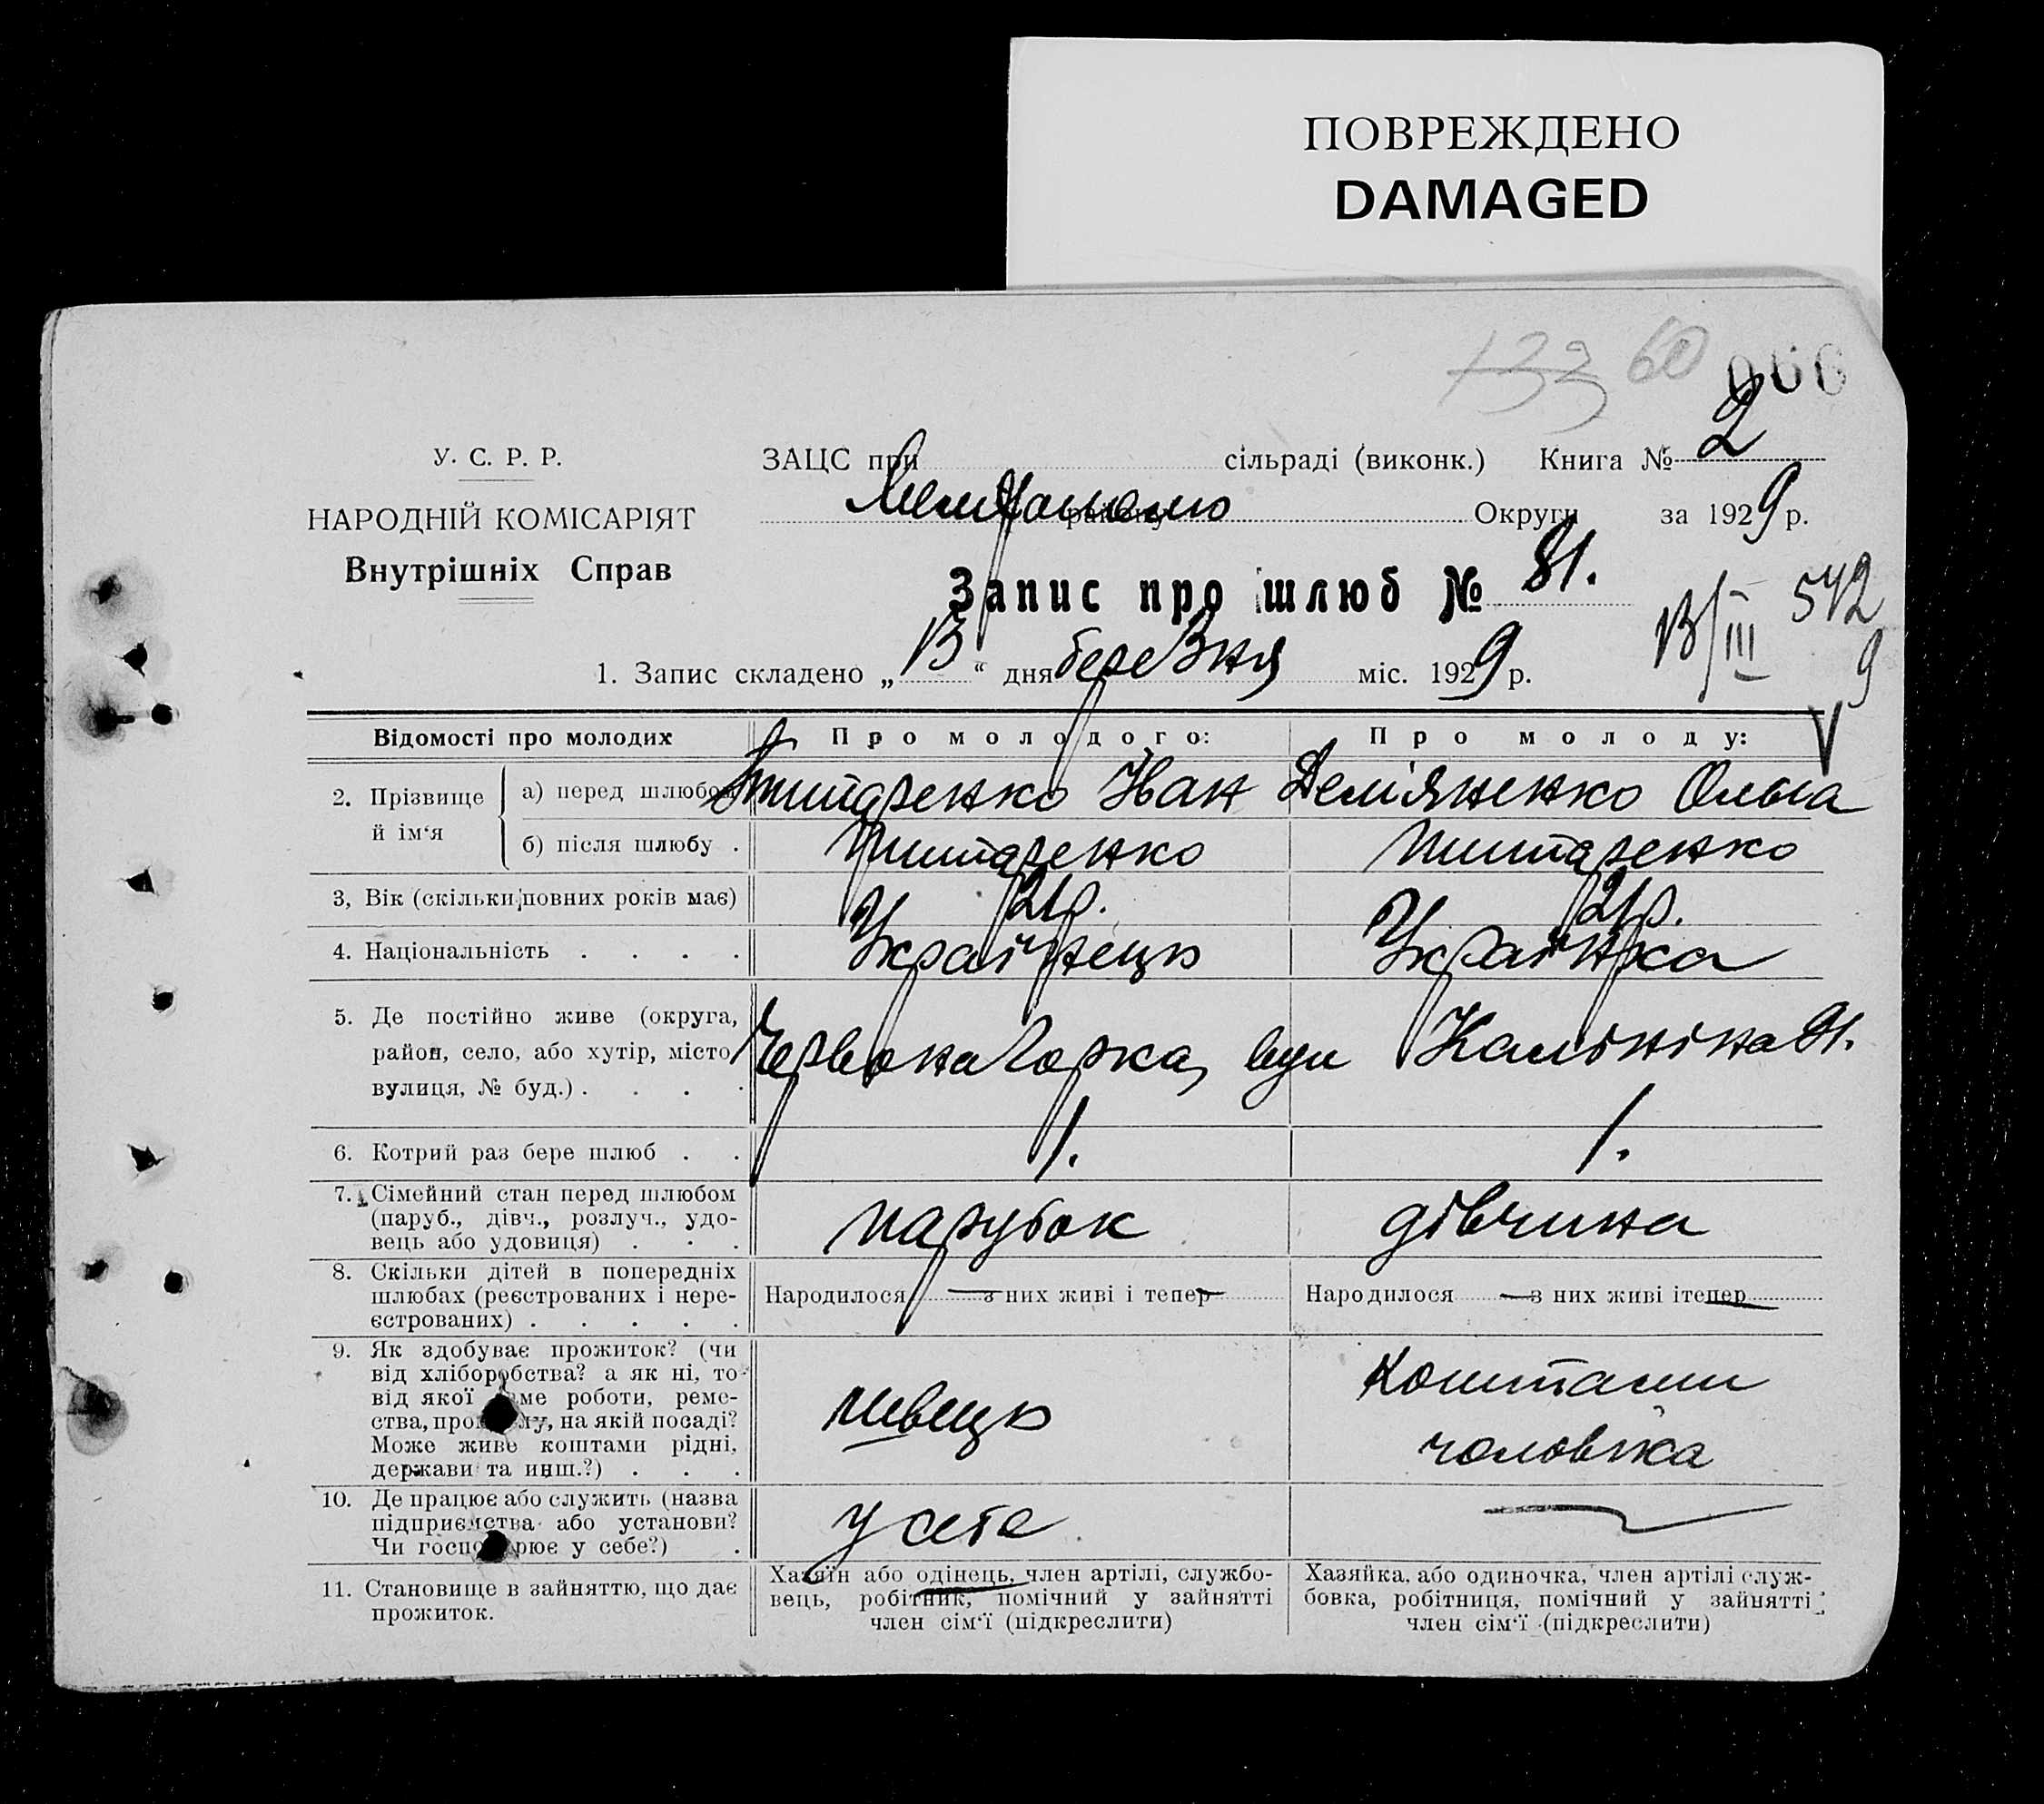 ПОВРЕЖДЕНО
DAMAGED
133 60
2
У. С. Р. Р.
ЗАЦС при сільраді (виконк.) Книга №
НАРОДНІЙ КОМІСАРІЯТ
району Округи за 1929 р.
Внутрішніх Справ
Запис про шлюб № 81.
13/III 9
542
1. Запис складено „13“ дня березня міс. 1929 р.
Відомості про молодих
Про молодого:
Про молоду:
2. Прізвище й ім‘я
а) перед шлюбом
Титаренко Іван
Дем'яненко Ольга
б) після шлюбу .
Титаренко
Титаренко
3, Вік (скільки повних років має)
21р.
21р.
4. Національність . . . .
Українець
Українка
5. Де постійно живе (округа,
район, село, або хутір, місто
вулиця, № буд.) . . . .
Червона Горка, вул Калініна 91.
6. Котрий раз бере шлюб . .
1.
1.
7. Сімейний стан перед шлюбом
(паруб., дівч., розлуч., удо-
вець або удовиця) . . .
парубок
дівчина
8. Скільки дітей в попередніх
шлюбах (реєстрованих і нере-
єстрованих) . . . . .
Народилося — з них живі і тепер —
Народилося — з них живі і тепер —
9. Як здобуває прожиток? (чи
від хліборобства? а як ні, то
від якої ме роботи, реме-
ства, про лу, на якій посаді?
Може живе коштами рідні,
держави та инш.?) . . .
швець
коштами
чоловіка
10. Де працює або служить (назва
підприємства або установи?
Чи госпо рює у себе?) .
у себе
—
11. Становище в зайняттю, що дає
прожиток.
Хазяїн або одінець, член артілі, службо-
вець, робітник, помічний у зайнятті
член сім‘ї (підкреслити)
Хазяйка, або одиночка, член артілі служ-
бовка, робітниця, помічний у зайнятті
член сім‘ї (підкреслити)